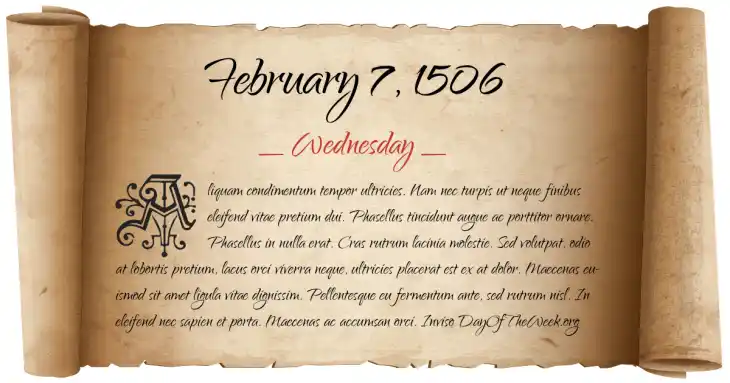 February 7, 1506
_ Wednesday _
Aliquam condimentum tempor ultricies. Nam nec turpis ut neque finibus
eleifend vitae pretium dui. Phasellus tincidunt augue ac porttitor ornare.
Phasellus in nulla erat. Cras rutrum lacinia molestie. Sed volutpat, odio
at lobortis pretium, lacus orci viverra neque, ultricies placerat est ex at dolor. Maecenas eu-
ismod sit amet ligula vitae dignissim. Pellentesque eu fermentum ante, sed rutrum nisl. In
eleifend nec sapien et porta. Maecenas ac accumsan orci. Invise DayOfTheWeek.org